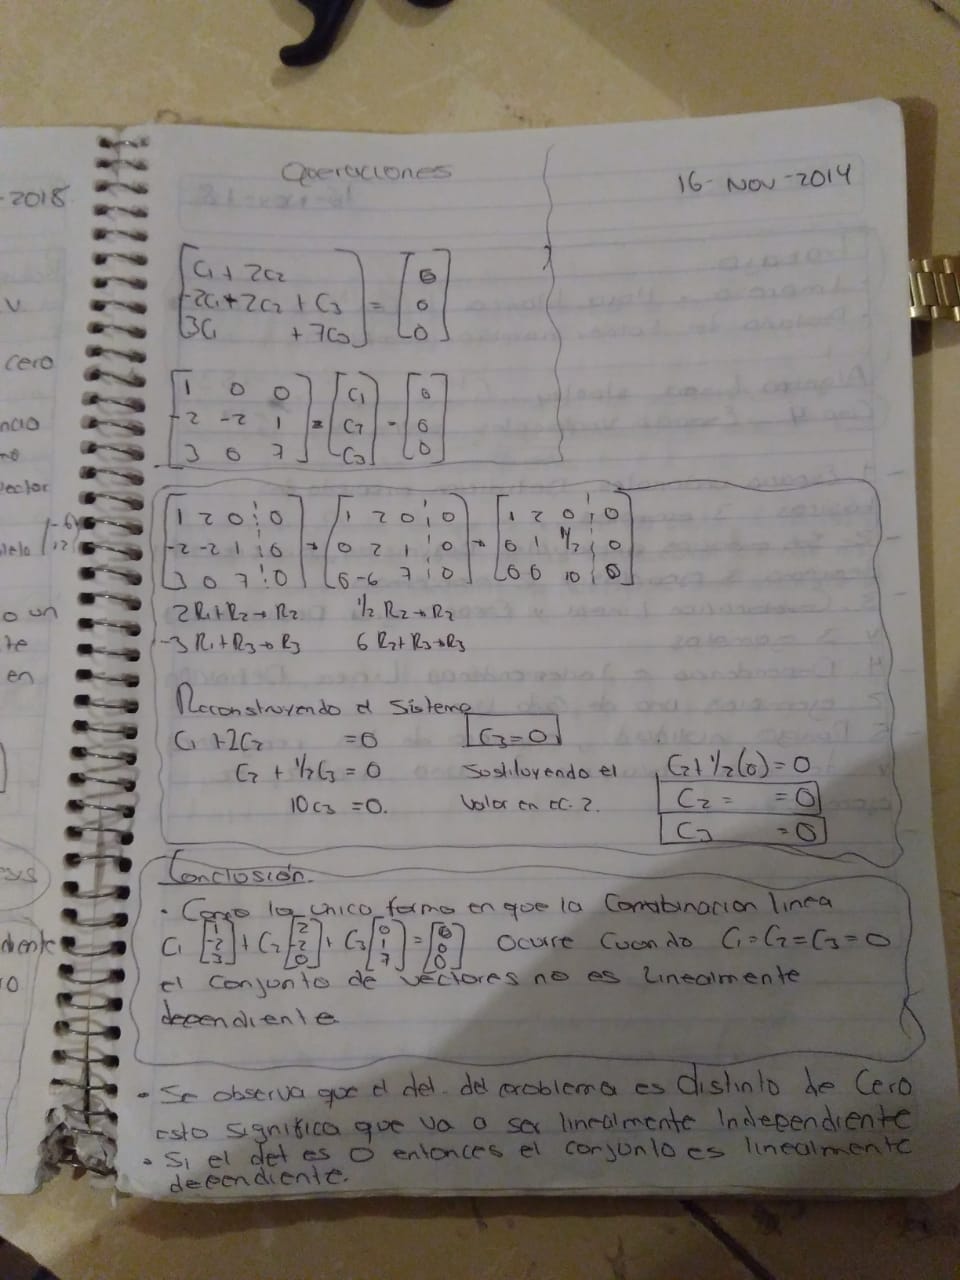 -2018
v
cero
Vector
o un
te
en
Operaciones
16-NOV-2014
[C1 + 2C2
-2C1+2C2 + C3
3C1 + 7C3] = [0
0
0]
[1 0 0
-2 -2 1
3 0 7] = [C1
C2
C3] = [0
0
0]
[1 2 0 ¦ 0
-2 -2 1 ¦ 0
3 0 7 ¦ 0] → [1 2 0 ¦ 0
0 2 1 ¦ 0
0 -6 7 ¦ 0] → [1 2 0 ¦ 0
0 1 1/2 ¦ 0
0 0 10 ¦ 0]
2R1+R2→R2 1/2 R2→R2
-3R1+R3→R3 6R2+R3→R3
Reconstruyendo el Sistema
C1 +2C2 =0 C3=0
C2 + 1/2C3 = 0 Sustituyendo el C2+1/2(0)=0
10C3 =0. Valor en ec. 2. C2 = =0
C3 =0
Conclusión.
• Como la unica forma en que la Combinacion linea
C1 [1 -2 3] + C2 [2 -2 0] + C3 [0 1 7] = [0 0 0] Ocurre Cuando C1=C2=C3=0
el conjunto de vectores no es linealmente
dependiente
• Se observa que el det. del problema es distinto de Cero
Esto significa que va a ser linealmente Independiente
• Si el det es 0 entonces el conjunto es linealmente
dependiente.